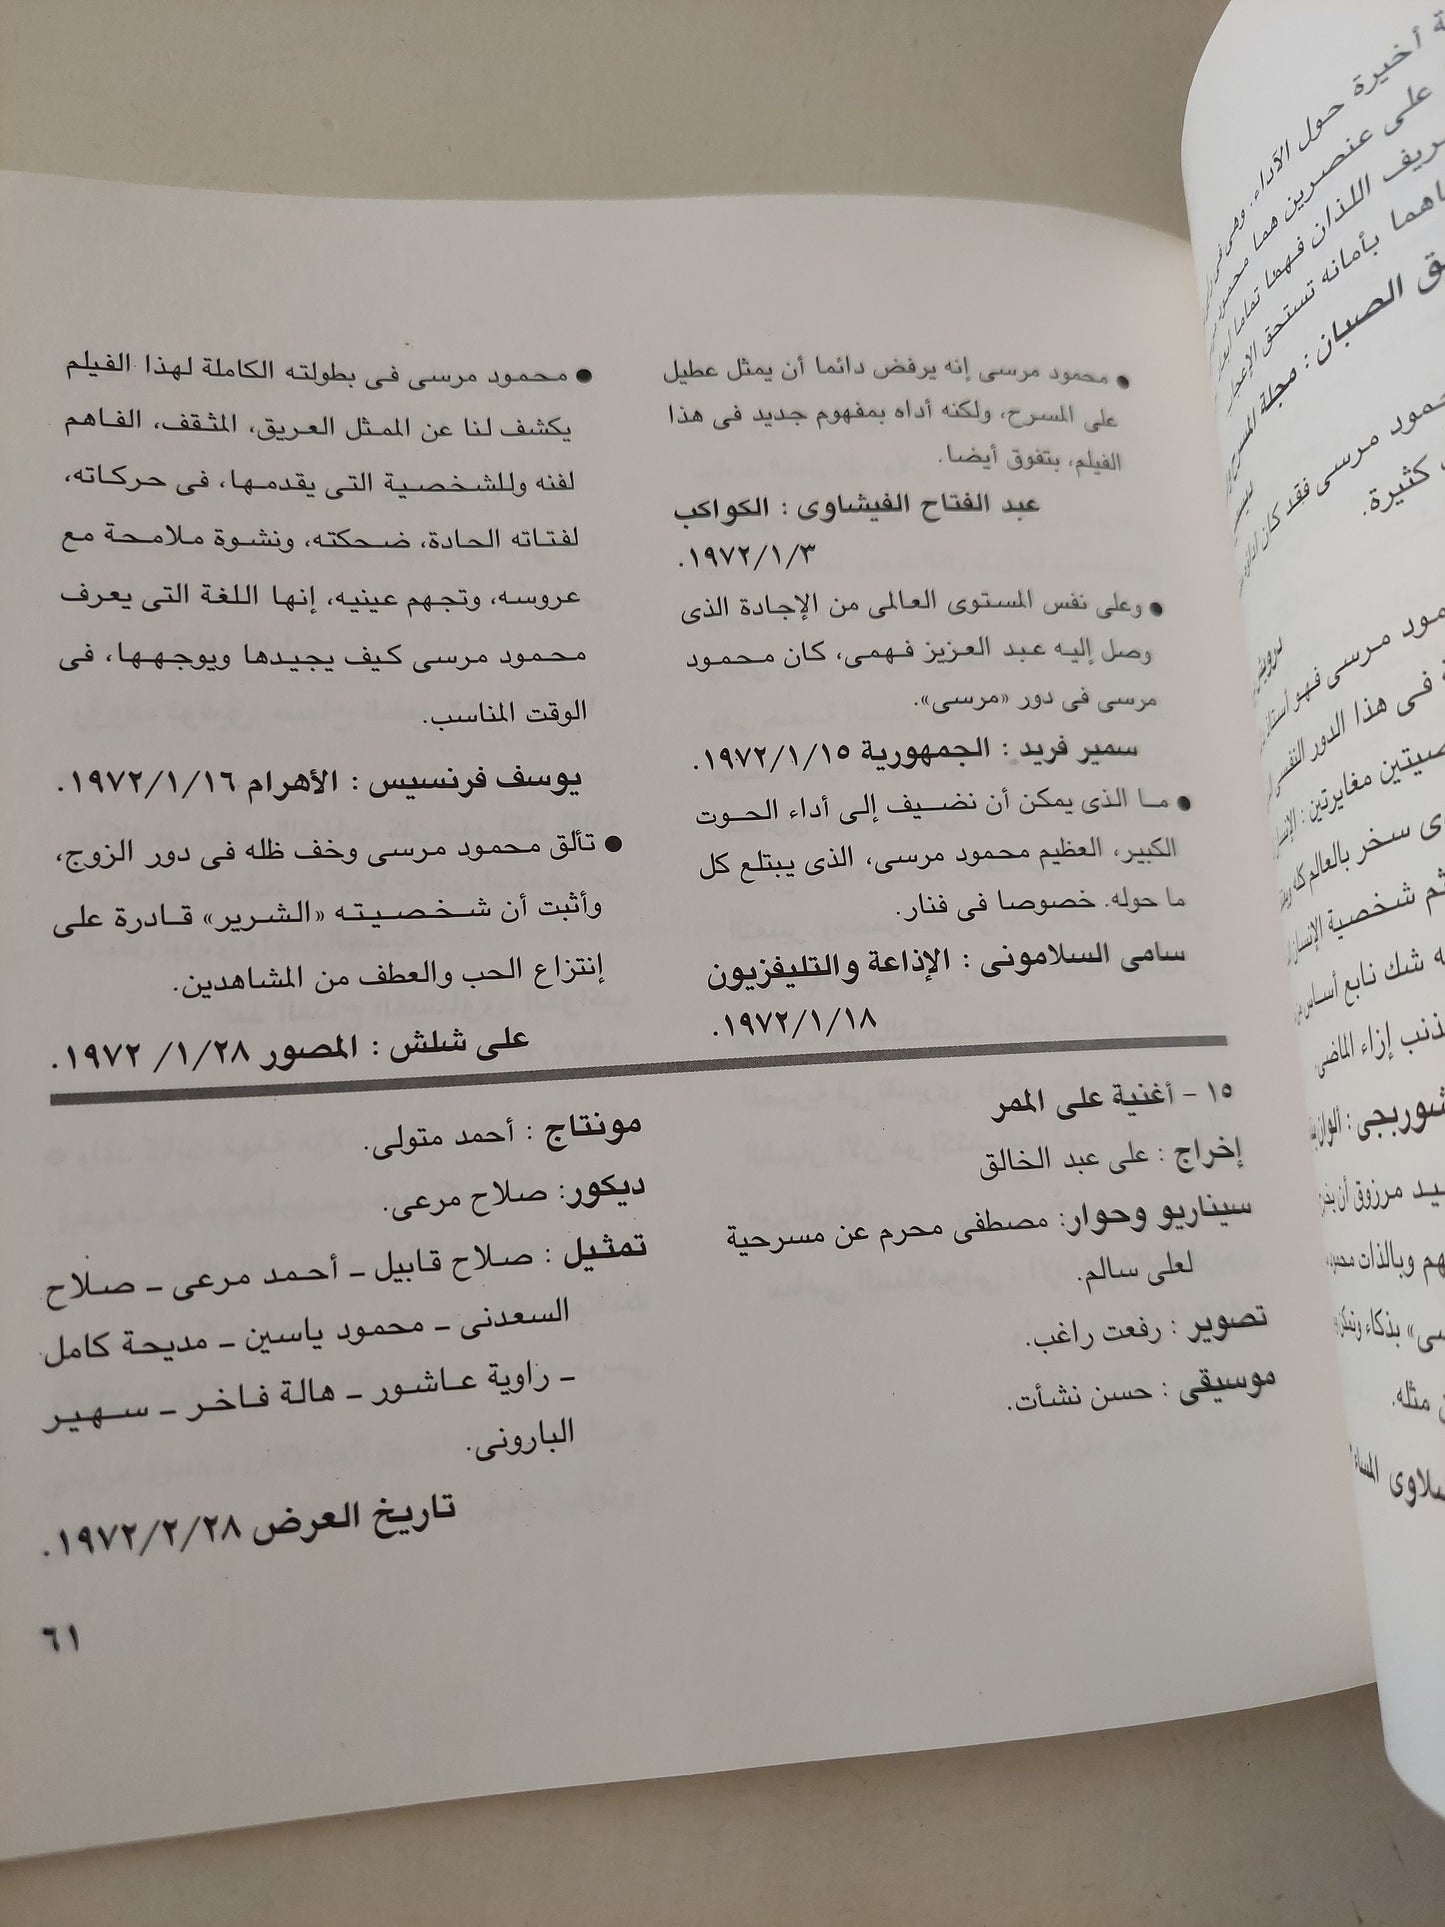 ● محمود مرسى إنه يرفض دائما أن يمثل عطيل
على المسرح، ولكنه أداه بمفهوم جديد فى هذا
الفيلم، بتفوق أيضا.
عبد الفتاح الفيشاوى : الكواكب
١٩٧٢/١/٣.
● وعلى نفس المستوى العالمى من الإجادة الذى
وصل إليه عبد العزيز فهمى، كان محمود
مرسى فى دور «مرسى».
سمير فريد : الجمهورية ١٩٧٢/١/١٥.
● ما الذى يمكن أن نضيف إلى أداء الحوت
الكبير، العظيم محمود مرسى، الذى يبتلع كل
ما حوله. خصوصا فى فنار.
سامى السلامونى : الإذاعة والتليفزيون
١٩٧٢/١/١٨.
● محمود مرسى فى بطولته الكاملة لهذا الفيلم
يكشف لنا عن الممثل العريق، المثقف، الفاهم
لفنه وللشخصية التى يقدمها، فى حركاته،
لفتاته الحادة، ضحكته، ونشوة ملامحة مع
عروسه، وتجهم عينيه، إنها اللغة التى يعرف
محمود مرسى كيف يجيدها ويوجهها، فى
الوقت المناسب.
يوسف فرنسيس : الأهرام ١٩٧٢/١/١٦.
● تألق محمود مرسى وخف ظله فى دور الزوج،
وأثبت أن شخصيته «الشرير» قادرة على
إنتزاع الحب والعطف من المشاهدين.
على شلش : المصور ١/٢٨/ ١٩٧٢.
١٥ - أغنية على الممر
إخراج : على عبد الخالق
سيناريو وحوار: مصطفى محرم عن مسرحية
لعلى سالم.
تصوير : رفعت راغب.
موسيقى : حسن نشأت.
مونتاج : أحمد متولى.
ديكور: صلاح مرعى.
تمثيل : صلاح قابيل ـ أحمد مرعى ـ صلاح
السعدنى ـ محمود ياسين ـ مديحة كامل
ـ راوية عاشور ـ هالة فاخر ـ سهير
البارونى.
تاريخ العرض ١٩٧٢/٢/٢٨.
٦١
أخيرة حول الآداء. وهى فى
على عنصرين هما
اللذان فهما تماما
بأمانه تستحق
الصبان : مجلة المسرح
مرسى فقد كان
كثيرة.
مرسى فهو
فى هذا الدور النفسى
مغايرتين :
سخر بالعالم كله
ثم شخصية الإنسان
شك نابع أساس
إزاء الماضى.
مرزوق أن
وبالذات
بذكاء
مثله.
المساء